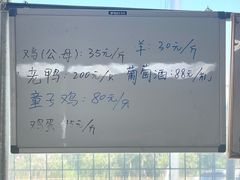 鸡(公母):35元/斤 羊:30元/斤
老鸭:200元/只 葡萄酒:88元/瓶
童子鸡:80元/只
鸡蛋:15元/斤